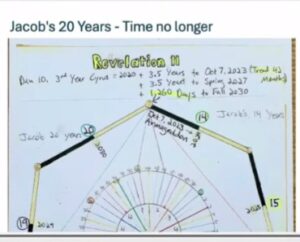 Jacob's 20 Years - Time no longer
Revelation 11
Dan 10, 3rd Year Cyrus = 2020 + 3.5 Years to Oct 7, 2023 (Tread 42 Months)
+ 3.5 Years to Spring 2027
+ 1,260 Days to Fall 2030
14
Jacob's 14 Years
Oct 7, 2023
Armageddon
Jacob 20 years
20
2020
15
19